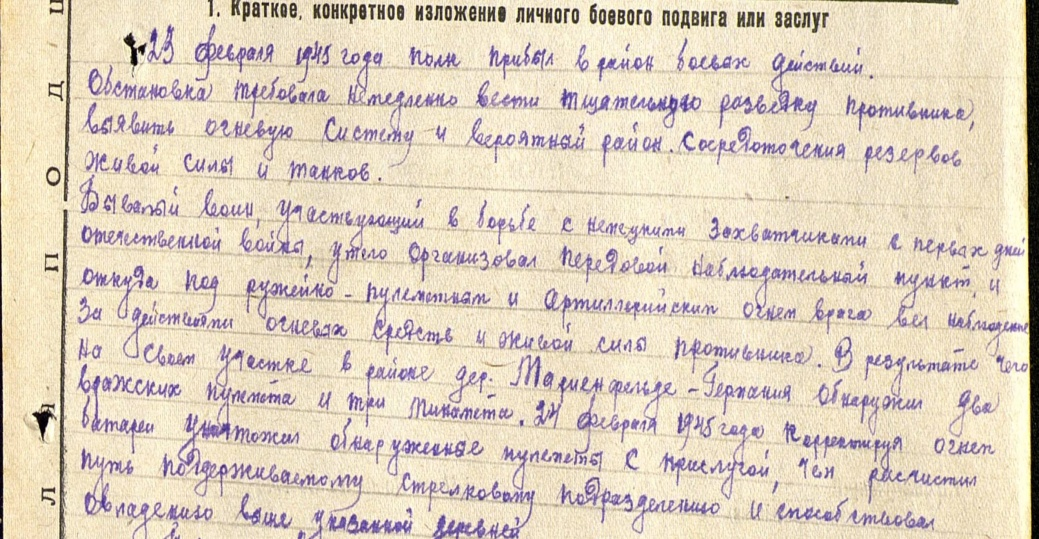 1. Краткое, конкретное изложение личного боевого подвига или заслуг
23 февраля 1945 года полк прибыл в район боевых действий.
Обстановка требовала немедленно вести тщательную разведку противника,
выявить огневую систему и вероятный район. Сосредоточения резервов
живой силы и танков.
Бывалый воин, участвующий в борьбе с немецкими захватчиками с первых дней
отечественной войны, умело организовал передовой наблюдательный пункт, и
откуда под ружейно-пулеметным и артиллерийским огнем врага вел наблюдение
За действиями огневых средств и живой силы противника. В результате чего
на своем участке в районе дер. Мариенфельде - Германия обнаружил два
вражских пулемета и три миномета. 24 февраля 1945 года корректируя огнем
батареи уничтожил обнаруженные пулеметы с прислугой, чем расчистил
путь поддерживаемому стрелковому подразделению и способствовал
овладению выше указанной деревней
П О Д
П
Л Я